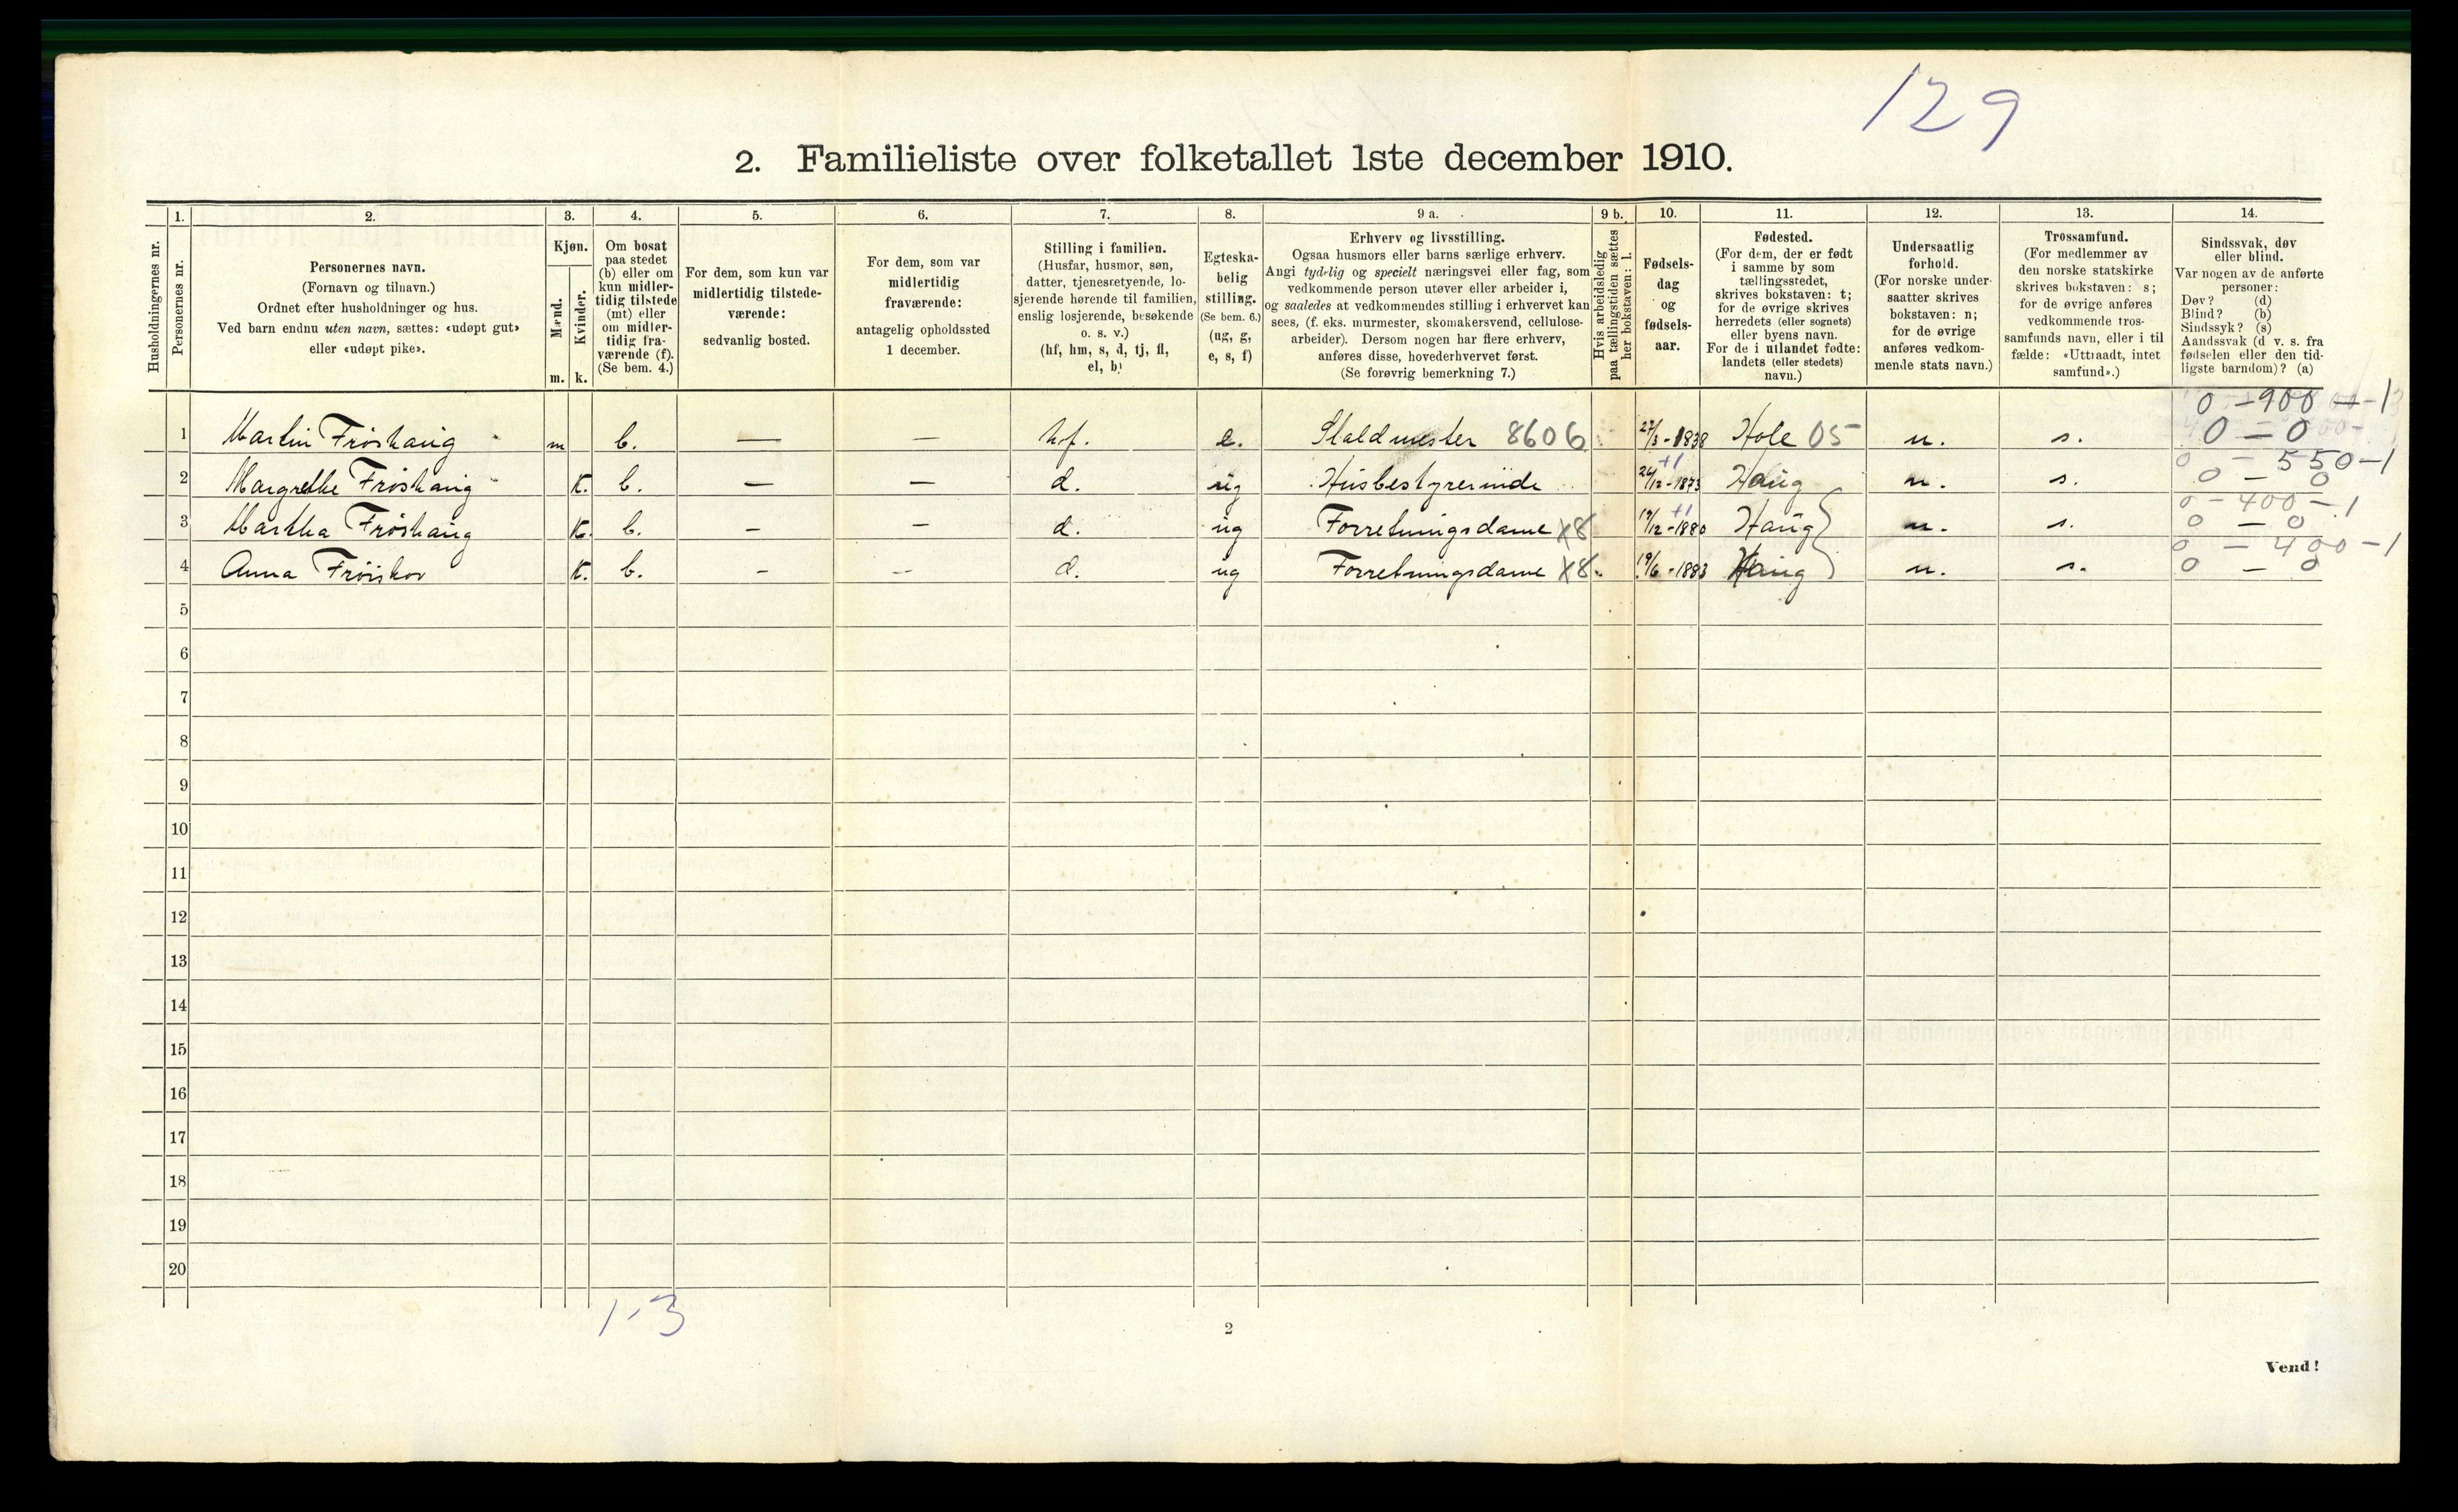 129
2. Familieliste over folketallet 1ste december 1910.
1. 2. 3. 4. 5. 6. 7. 8. 9 a. 9 b. 10. 11. 12. 13. 14.
Husholdningernes nr.
Personernes nr.
Personernes navn.
(Fornavn og tilnavn.)
Ordnet efter husholdninger og hus.
Ved barn endnu uten navn, sættes: «udøpt gut»
eller «udøpt pike».
Kjøn.
Mænd.
Kvinder.
m. k.
Om bosat
paa stedet
(b) eller om
kun midler-
tidig tilstede
(mt) eller
om midler-
tidig fra-
værende (f).
(Se bem. 4.)
For dem, som kun var
midlertidig tilstede-
værende:
sedvanlig bosted.
For dem, som var
midlertidig
fraværende:
antagelig opholdssted
1 december.
Stilling i familien.
(Husfar, husmor, søn,
datter, tjenesretyende, lo-
sjerende hørende til familien,
enslig losjerende, besøkende
o. s. v.)
(hf, hm, s, d, tj, fl,
el, b)
Egteska-
belig
stilling.
(Se bem. 6.)
(ug, g,
e, s, f)
Erhverv og livsstilling.
Ogsaa husmors eller barns særlige erhverv.
Angi tydelig og specielt næringsvei eller fag, som
vedkommende person utøver eller arbeider i,
og saaledes at vedkommendes stilling i erhvervet kan
sees, (f. eks. murmester, skomakersvend, cellulose-
arbeider). Dersom nogen har flere erhverv,
anføres disse, hovederhvervet først.
(Se forøvrig bemerkning 7.)
Hvis arbeidsledig
paa tællingstiden sættes
her bokstaven: l.
Fødsels-
dag
og
fødsels-
aar.
Fødested.
(For dem, der er født
i samme by som
tællingsstedet,
skrives bokstaven: t;
for de øvrige skrives
herredets (eller sognets)
eller byens navn.
For de i utlandet fødte:
landets (eller stedets)
navn.)
Undersaatlig
forhold.
(For norske under-
saatter skrives
bokstaven: n;
for de øvrige
anføres vedkom-
mende stats navn.)
Trossamfund.
(For medlemmer av
den norske statskirke
skrives bokstaven: s;
for de øvrige anføres
vedkommende tros-
samfunds navn, eller i til
fælde: «Uttraadt, intet
samfund».)
Sindssvak, døv
eller blind.
Var nogen av de anførte
personer:
Døv? (d)
Blind? (b)
Sindssyk? (s)
Aandssvak (d v. s. fra
fødselen eller den tid-
ligste barndom)? (a)
0 - 900 - 1
1 Martin Frøshaug m b. — — hf. e. Staldmester 8606 27/3 - 1838 Hole 05 n. s. 0 - 0
0 - 550 - 1
2 Margrethe Frøshaug K. b. — — d. ug Husbestyrerinde 24/12 - 1873 +1 Haug n. s. 0 - 0
0 - 400 - 1
3 Martha Frøshaug K. b. - - d. ug Forretningsdame X8 19/12 - 1880 +1 Haug n. s. 0 - 0
0 - 400 - 1
4 Anna Frøishov K. b. - - d. ug Forretningsdame X8 19/6 - 1883 Haug n. s. 0 - 0
5
6
7
8
9
10
11
12
13
14
15
16
17
18
19
20
1-3
2
Vend!